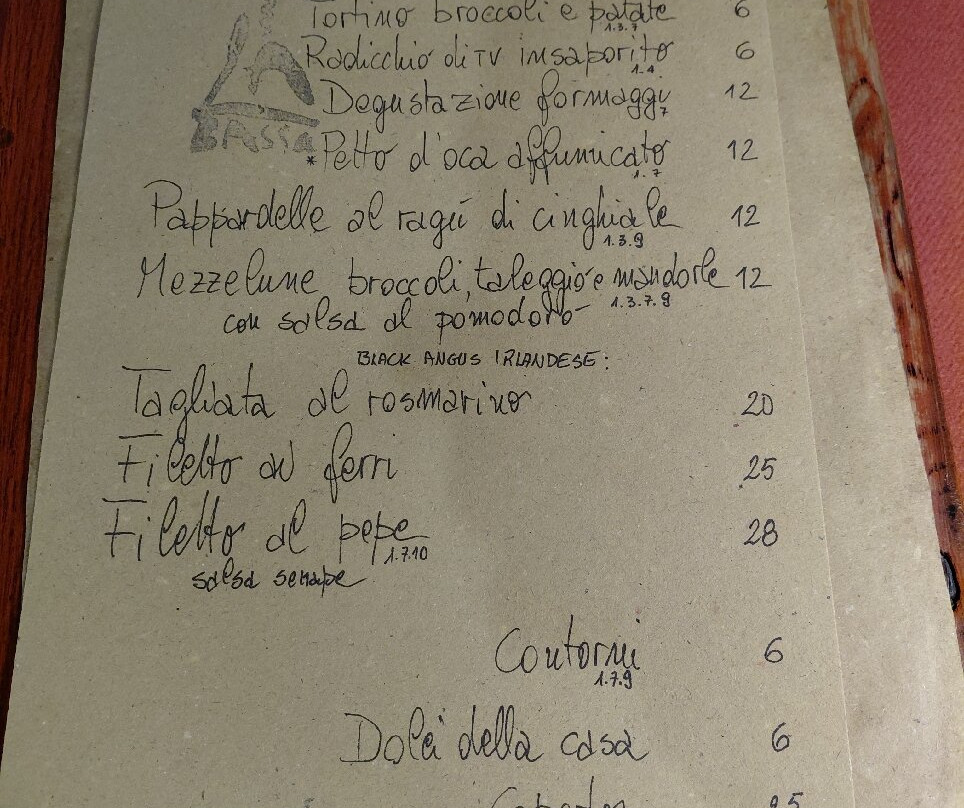 Tortino broccoli e patate 6
1.3.7
Radicchio di TV insaporito 6
1.4
Degustazione formaggi 12
7
BASSA
*Petto d'oca affumicato 12
1.7
Pappardelle al ragù di cinghiale 12
1.3.9
Mezzelune broccoli, taleggio e mandorle 12
1.3.7.9
con salsa al pomodoro
BLACK ANGUS IRLANDESE:
Tagliata al rosmarino 20
Filetto ai ferri 25
Filetto al pepe 28
1.7.10
salsa senape
Contorni 6
1.7.9
Dolci della casa 6